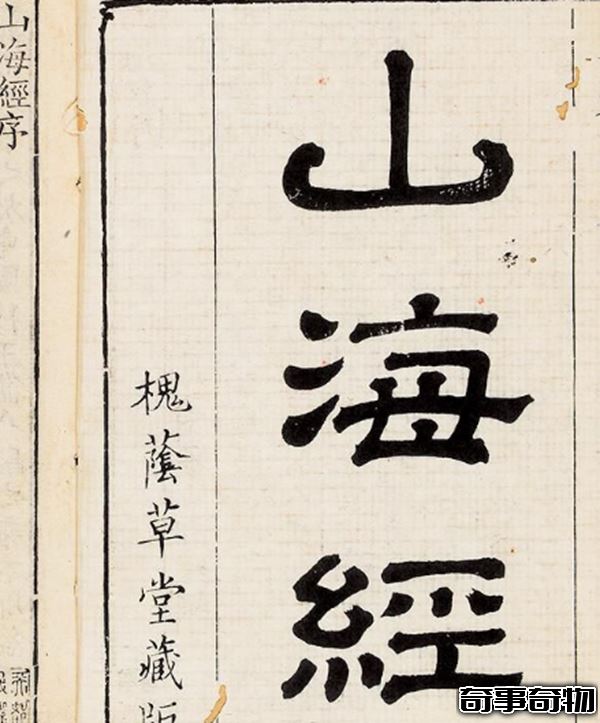 山海經
槐蔭草堂藏版
山海經序
奇事奇物